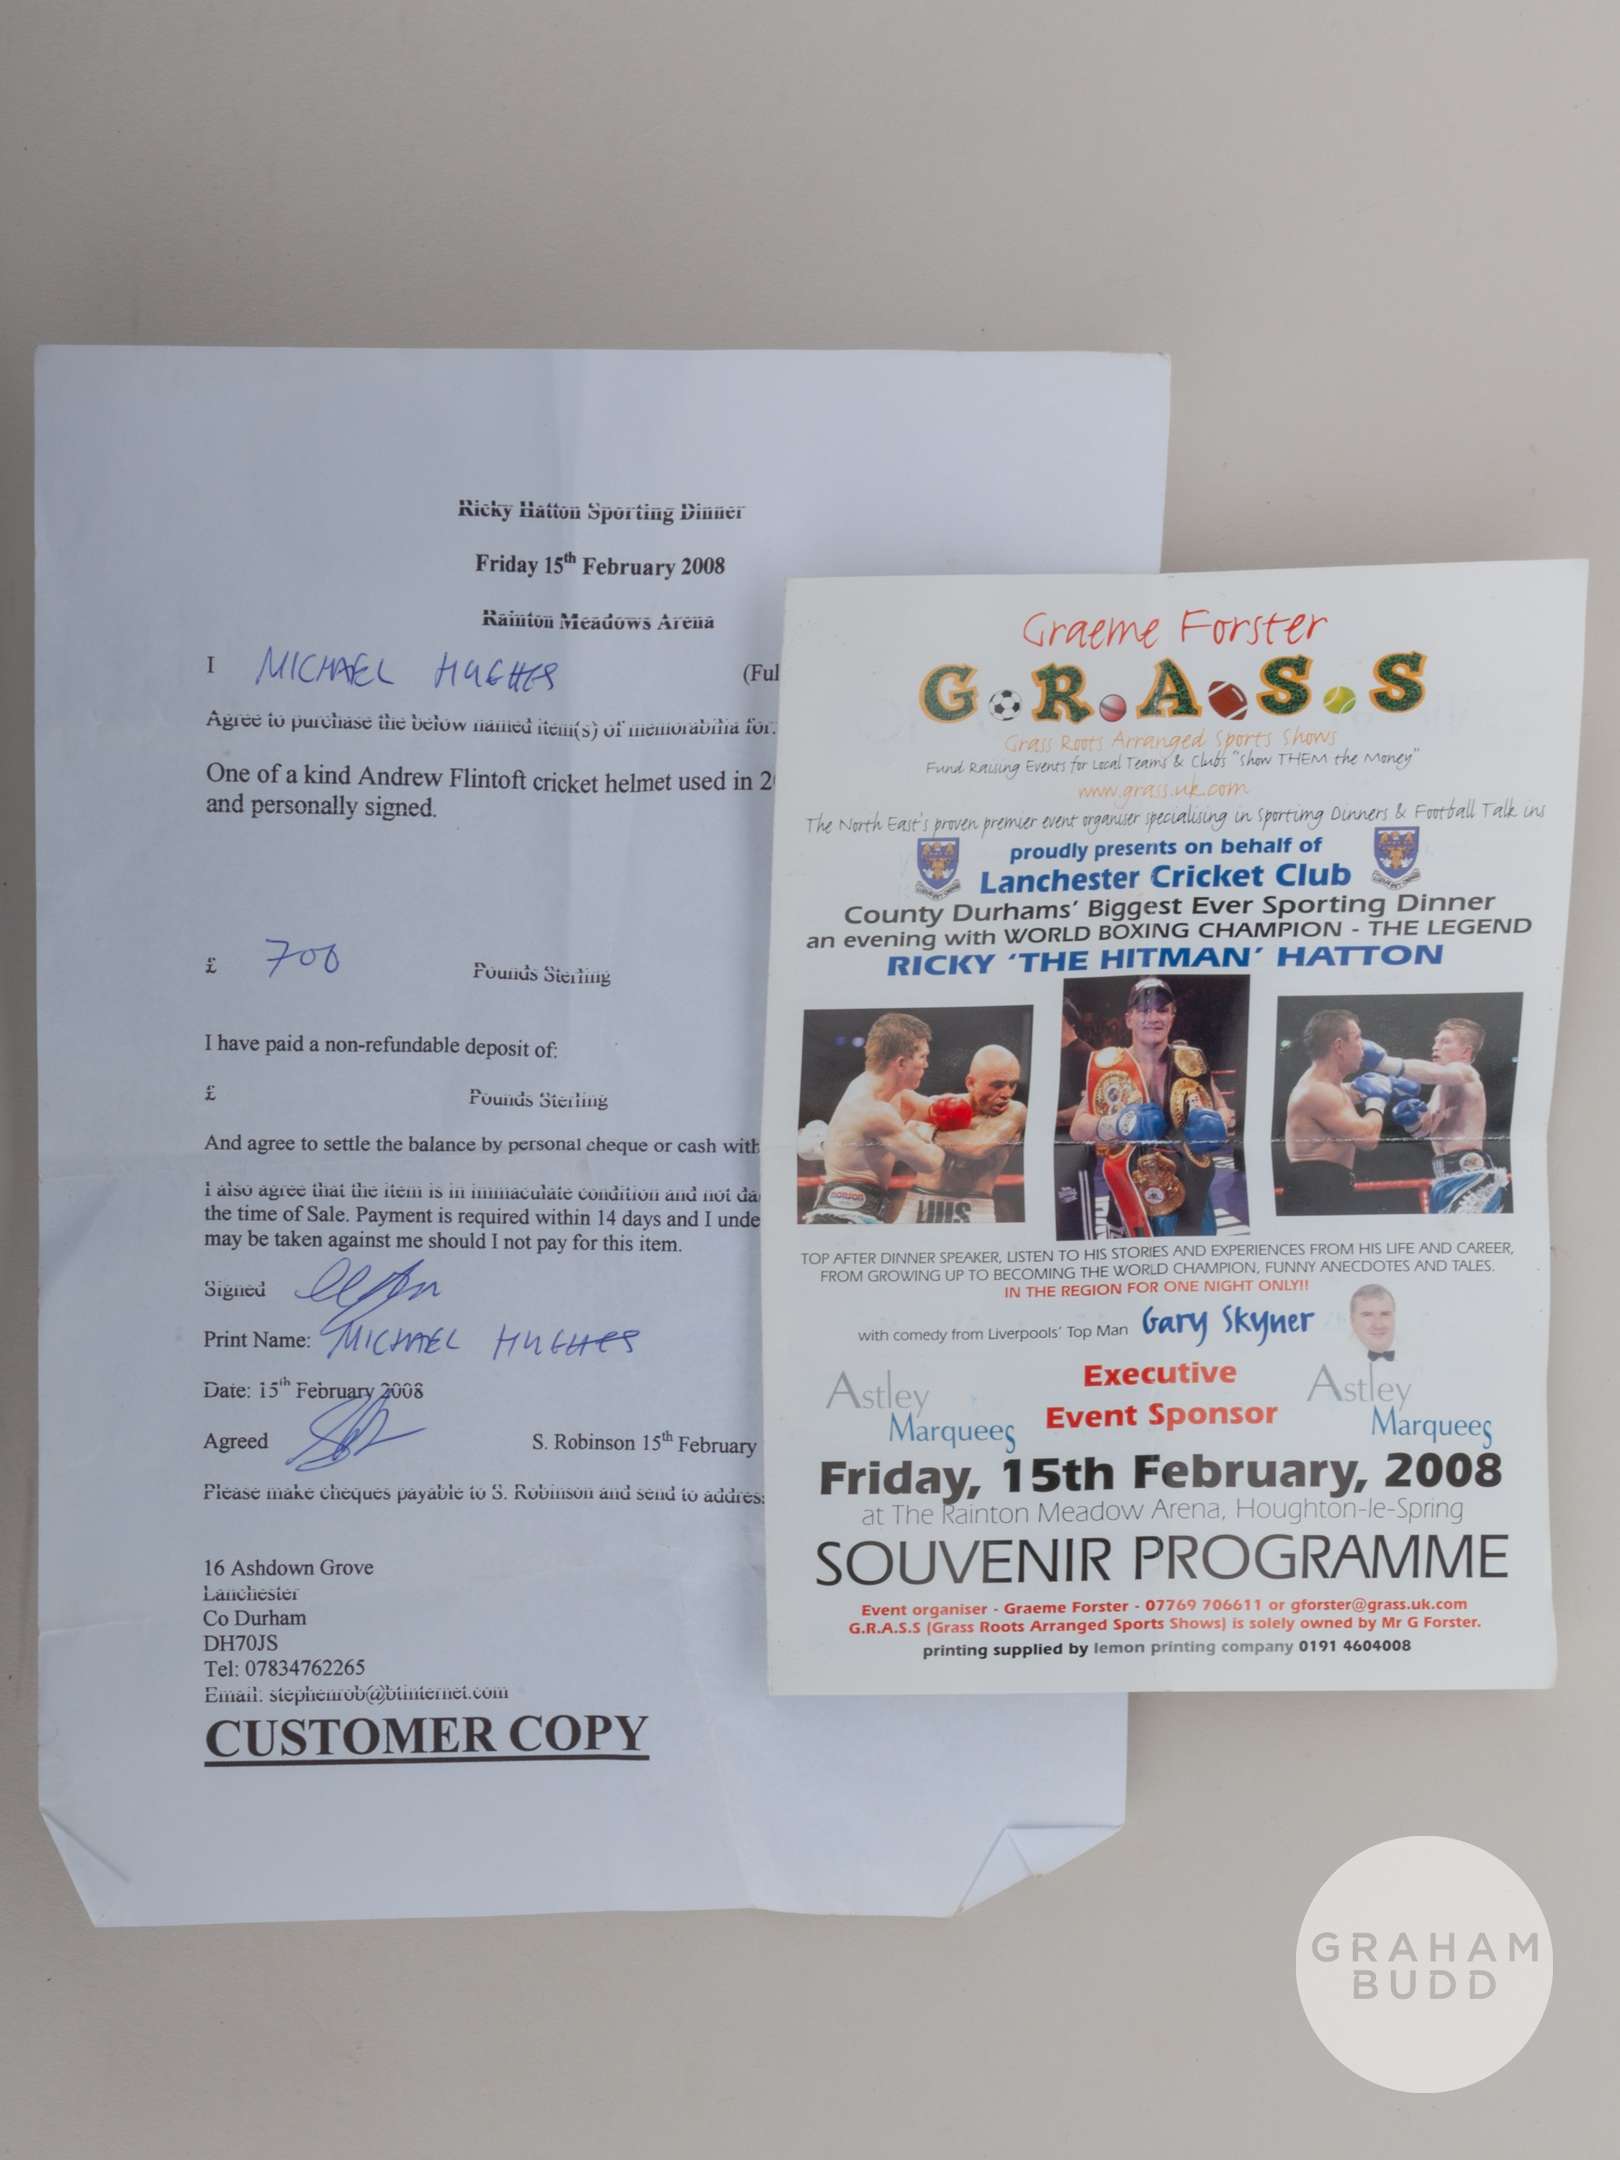 Ricky Hatton Sporting Dinner
Friday 15th February 2008
Rainton Meadows Arena
I MICHAEL HUGHES (Ful
Agree to purchase the below named item(s) of memorabilia for.
One of a kind Andrew Flintoft cricket helmet used in 2
and personally signed.
£ 700 Pounds Sterling
I have paid a non-refundable deposit of:
£ Pounds Sterling
And agree to settle the balance by personal cheque or cash with
I also agree that the item is in immaculate condition and not da
the time of Sale. Payment is required within 14 days and I unde
may be taken against me should I not pay for this item.
Signed
Print Name: MICHAEL HUGHES
Date: 15th February 2008
Agreed S. Robinson 15th February
Please make cheques payable to S. Robinson and send to address
16 Ashdown Grove
Lanchester
Co Durham
DH70JS
Tel: 07834762265
Email: stephenrob@btinternet.com
CUSTOMER COPY
Graeme Forster
G.R.A.S.S
Grass Roots Arranged Sports Shows
Fund Raising Events for Local Teams & Clubs "show THEM the Money"
www.grass.uk.com
The North East's proven premier event organiser specialising in Sportimg Dinners & Football Talk ins
proudly presents on behalf of
Lanchester Cricket Club
County Durhams' Biggest Ever Sporting Dinner
an evening with WORLD BOXING CHAMPION - THE LEGEND
RICKY 'THE HITMAN' HATTON
TOP AFTER DINNER SPEAKER, LISTEN TO HIS STORIES AND EXPERIENCES FROM HIS LIFE AND CAREER,
FROM GROWING UP TO BECOMING THE WORLD CHAMPION, FUNNY ANECDOTES AND TALES.
IN THE REGION FOR ONE NIGHT ONLY!!
with comedy from Liverpools' Top Man Gary Skyner
Executive
Event Sponsor
Astley
Marquees
Astley
Marquees
Friday, 15th February, 2008
at The Rainton Meadow Arena, Houghton-le-Spring
SOUVENIR PROGRAMME
Event organiser - Graeme Forster - 07769 706611 or gforster@grass.uk.com
G.R.A.S.S (Grass Roots Arranged Sports Shows) is solely owned by Mr G Forster.
printing supplied by lemon printing company 0191 4604008
GRAHAM
BUDD